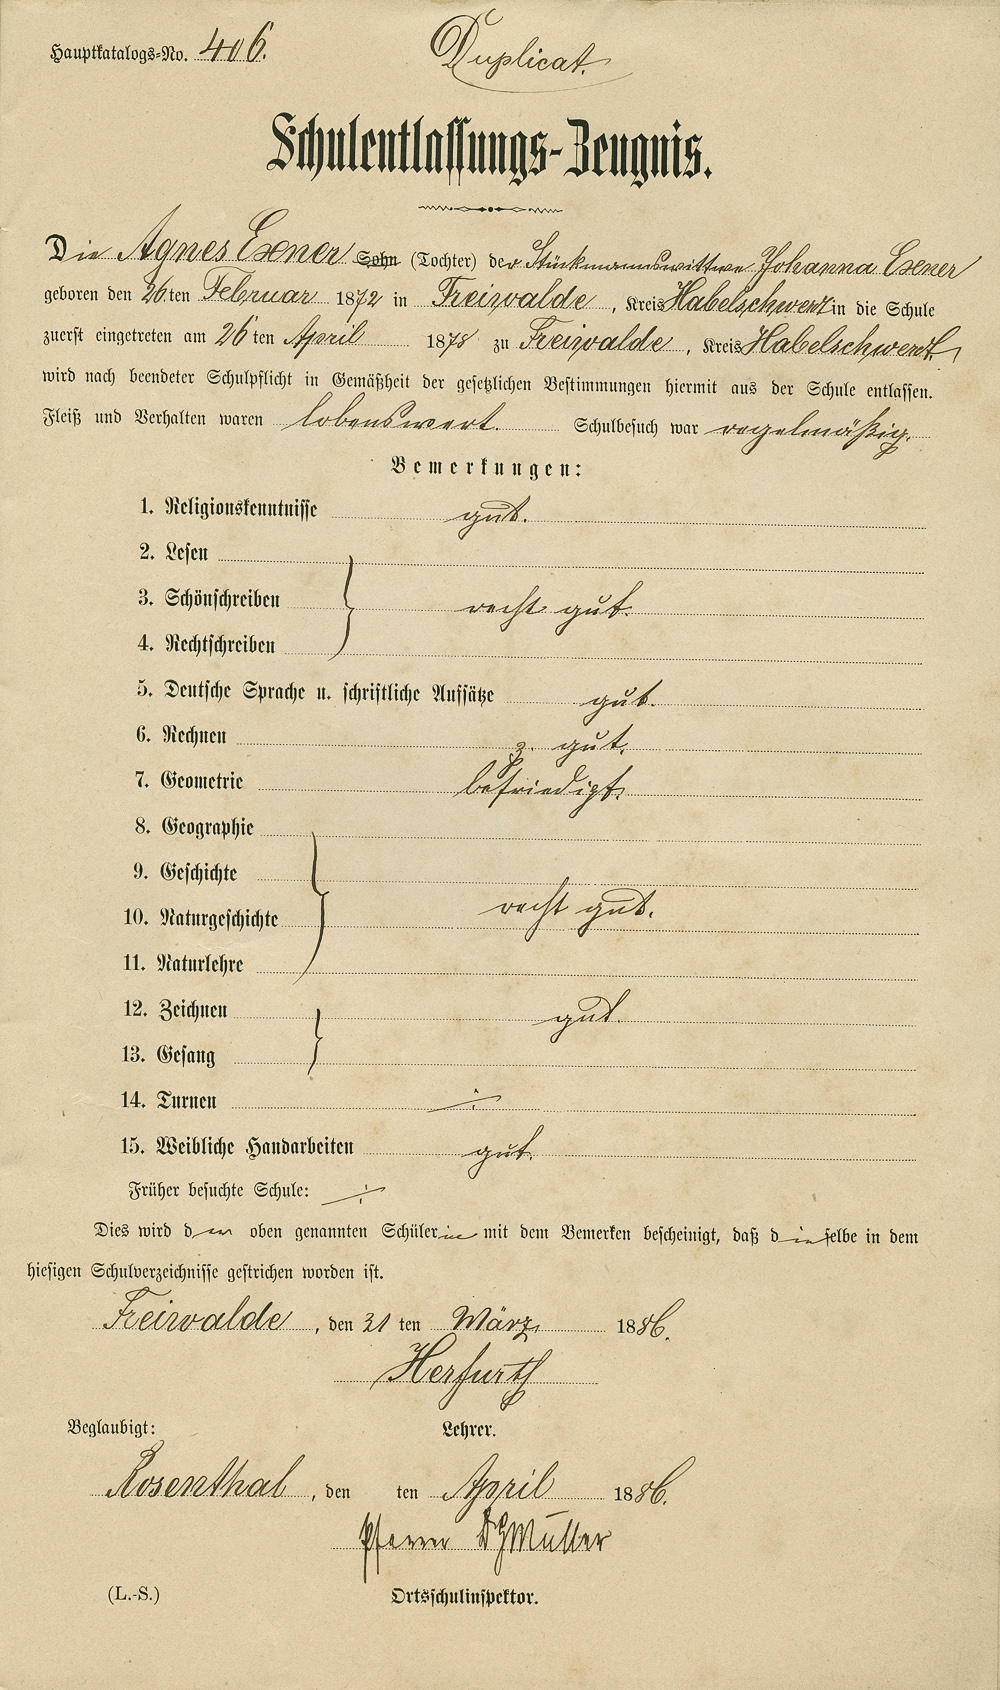 Hauptkatalogs-No. 406.
Duplicat.
Schulentlassungs-Zeugnis.
Die Agnes Exner Sohn (Tochter) der Stückmannswittwe Johanna Exner
geboren den 26ten Februar 1872 in Freiwalde, Kreis Habelschwerdt in die Schule
zuerst eingetreten am 26ten April 1878 zu Freiwalde, Kreis Habelschwerdt,
wird nach beendeter Schulpflicht in Gemäßheit der gesetzlichen Bestimmungen hiermit aus der Schule entlassen.
Fleiß und Verhalten waren lobenswert. Schulbesuch war regelmäßig.
Bemerkungen:
1. Religionskenntnisse gut.
2. Lesen
3. Schönschreiben recht gut.
4. Rechtschreiben
5. Deutsche Sprache u. schriftliche Aufsätze gut.
6. Rechnen z. gut.
7. Geometrie befriedigt.
8. Geographie
9. Geschichte
10. Naturgeschichte recht gut.
11. Naturlehre
12. Zeichnen gut.
13. Gesang
14. Turnen ÷
15. Weibliche Handarbeiten gut.
Früher besuchte Schule: ÷
Dies wird der oben genannten Schülerin mit dem Bemerken bescheinigt, daß dieselbe in dem
hiesigen Schulverzeichnisse gestrichen worden ist.
Freiwalde, den 31 ten März 1886.
Herfurth
Beglaubigt: Lehrer.
Rosenthal, den ten April 1886.
Pfarrer Müller
(L.-S.) Ortsschulinspektor.